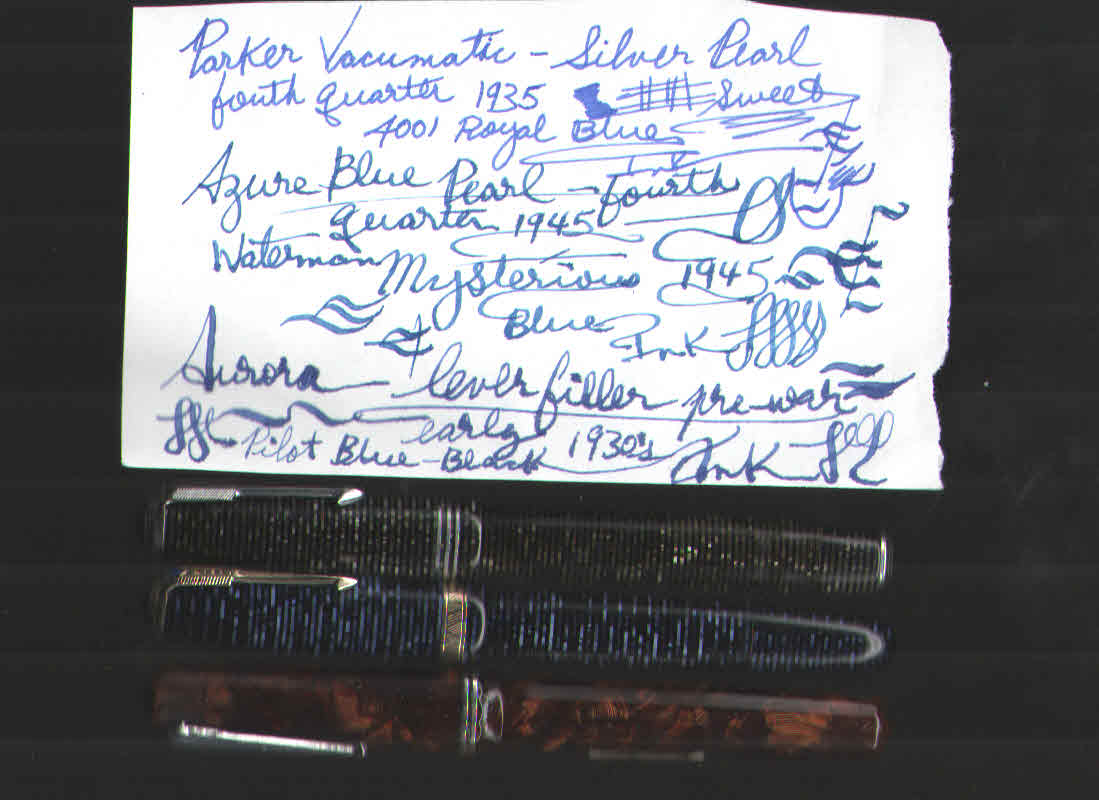 Parker Vacumatic - Silver Pearl
fouth quarter 1935 Sweet
4001 Royal Blue
Ink
Azure Blue Pearl - fourth
quarter 1945
Waterman Mysterious 1945
Blue Ink
Aurora - lever filler pre-war
early 1930's
Pilot Blue-Black Ink